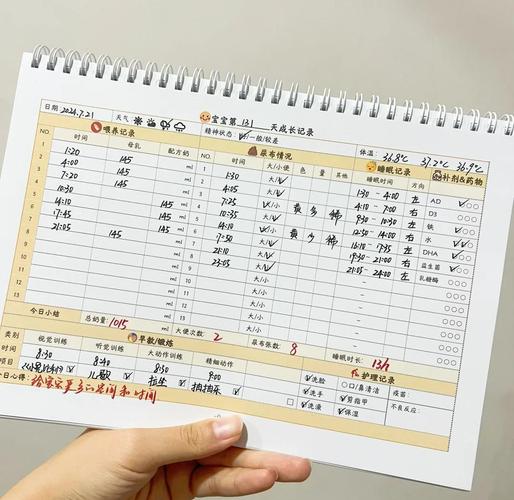 日期 2024.7.21 天气 宝宝第 121 天成长记录
喂养记录 精神状态: ✓/一般/较差 体温: 36.8℃ 37.2℃ 36.9℃
NO. 时间 母乳 配方奶 NO. 尿布情况 睡眠记录 补剂&药物
时间 大/小便 色 量 其他 睡眠时间 方向
1 1:20 145 ml 1 1:30 大/✓ 1:30 - 4:00 左 AD ✓○○
2 4:00 145 ml 2 4:05 大/✓ 4:10 - 7:00 右 D3 ○○○
3 7:20 145 ml 3 7:25 ✓/小 黄 多 稀 9:30 - 10:30 左 铁 ✓○○
4 10:30 145 ml 4 10:35 大/✓ 12:30 - 14:00 右 水 ✓✓
5 14:10 145 ml 5 14:10 ✓/小 黄 多 稀 16:10 - 17:35 左 DHA ✓○○
6 17:45 145 ml 6 17:50 大/✓ 19:30 - 21:00 右 益生菌 ✓○○
7 21:05 145 ml 7 21:10 大/✓ 21:05 - 24:00 左 乳糖酶 ○○○
8 ml 8 23:05 大/✓ - ○○○
9 ml 9 大/小 - ○○○
10 ml 10 大/小 - ○○○
11 ml 11 大/小 - ○○○
12 ml 12 大/小 - ○○○
13 ml 13 大/小 - ○○○
今日小结 总奶量: 1015 ml 大便次数: 2 尿布张数: 8 睡眠时长: 13h
早教/锻炼 护理记录
类别 视觉训练 听觉训练 大动作训练 精细动作 ✓洗脸 ○口/鼻清洁 疫苗:
时间 8:30 8:40 8:50 9:00 ✓洗手 ✓剪指甲 不良反应:
项目 儿歌 拉坐 抽抽乐 ✓洗澡 ✓保湿
今日心得: 给宝宝更多的空间和时间